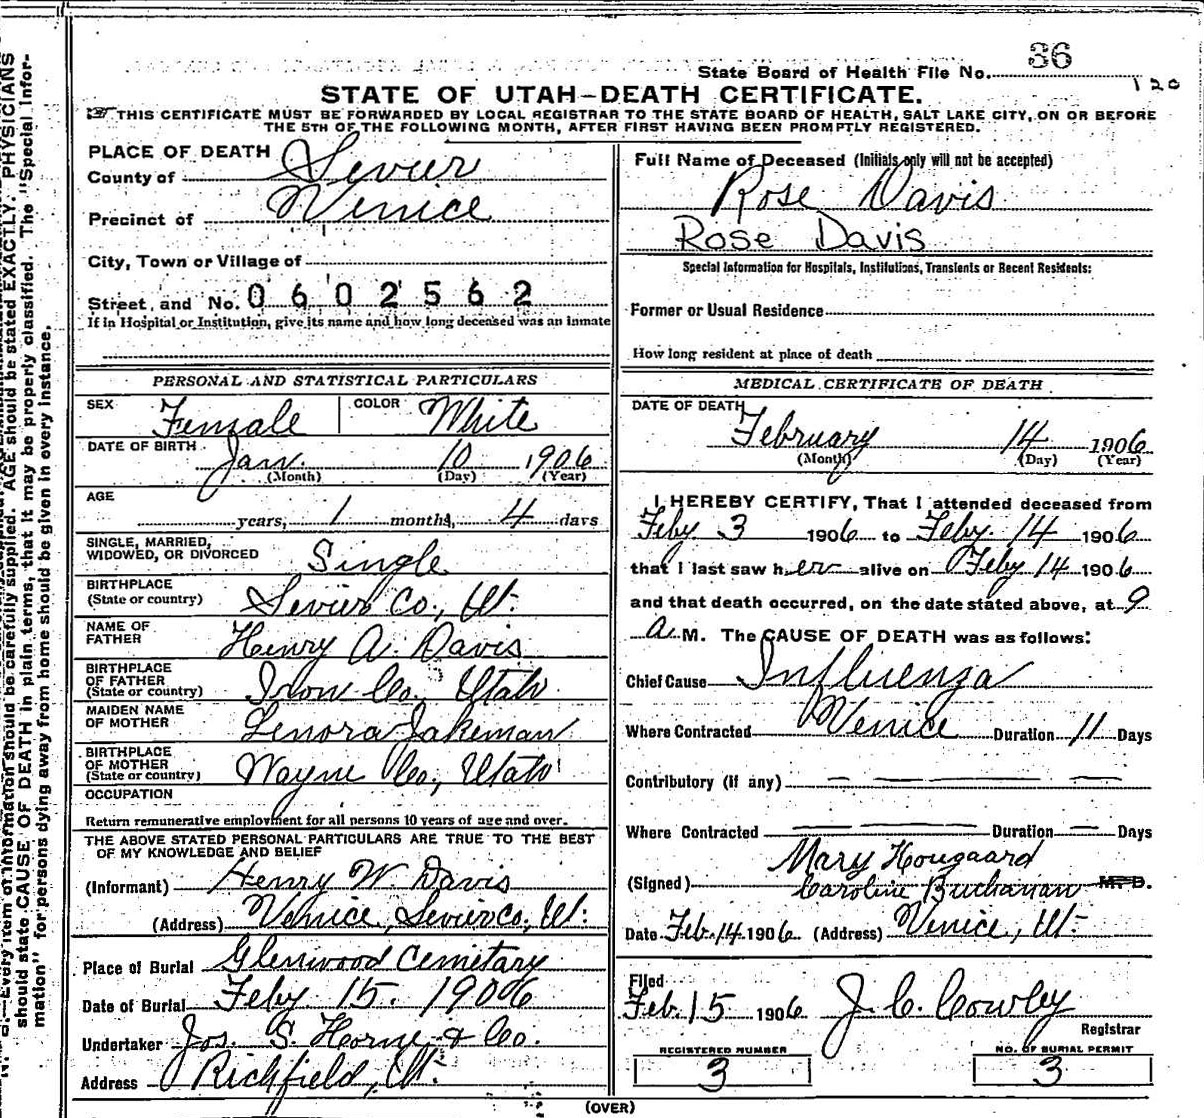 36
State Board of Health File No.
120
STATE OF UTAH—DEATH CERTIFICATE.
THIS CERTIFICATE MUST BE FORWARDED BY LOCAL REGISTRAR TO THE STATE BOARD OF HEALTH, SALT LAKE CITY, ON OR BEFORE
THE 5TH OF THE FOLLOWING MONTH, AFTER FIRST HAVING BEEN PROMPTLY REGISTERED.
PLACE OF DEATH
County of Sevier
Precinct of Venice
City, Town or Village of
Street, and No. 0602562
If in Hospital or Institution, give its name and how long deceased was an inmate
PERSONAL AND STATISTICAL PARTICULARS
SEX Female COLOR White
DATE OF BIRTH Jan. 10 1906
(Month) (Day) (Year)
AGE
years, 1 months, 4 days
SINGLE, MARRIED,
WIDOWED, OR DIVORCED Single
BIRTHPLACE
(State or country) Sevier Co., Ut.
NAME OF
FATHER Henry A. Davis
BIRTHPLACE
OF FATHER
(State or country) Iron Co. Utah
MAIDEN NAME
OF MOTHER Lenora Jakeman
BIRTHPLACE
OF MOTHER
(State or country) Wayne Co, Utah
OCCUPATION
Return remunerative employment for all persons 10 years of age and over.
THE ABOVE STATED PERSONAL PARTICULARS ARE TRUE TO THE BEST
OF MY KNOWLEDGE AND BELIEF
(Informant) Henry W. Davis
(Address) Venice, Sevier Co, Ut.
Place of Burial Glenwood Cemetary
Date of Burial Feby 15. 1906
Undertaker Jos. S. Horne & Co.
Address Richfield, Ut.
Full Name of Deceased (Initials only will not be accepted)
Rose Davis
Rose Davis
Special Information for Hospitals, Institutions, Transients or Recent Residents:
Former or Usual Residence
How long resident at place of death
MEDICAL CERTIFICATE OF DEATH
DATE OF DEATH
February 14 1906
(Month) (Day) (Year)
I HEREBY CERTIFY, That I attended deceased from
Feby 3 1906 to Feby. 14 1906
that I last saw her alive on Feby 14 1906
and that death occurred, on the date stated above, at 9
A. M. The CAUSE OF DEATH was as follows:
Chief Cause Influenza
Where Contracted Venice Duration 11 Days
Contributory (If any)
Where Contracted Duration Days
Mary Hougaard
(Signed) Caroline Buchanan M. D.
Date Feb. 14 1906 (Address) Venice, Ut.
Filed
Feb. 15 1906 J. C. Cowley
Registrar
REGISTERED NUMBER NO. OF BURIAL PERMIT
3 3
(OVER)
B.—Every item of information should be carefully supplied. AGE should be stated EXACTLY. PHYSICIANS
should state CAUSE OF DEATH in plain terms, that it may be properly classified. The "Special Infor-
mation" for persons dying away from home should be given in every instance.